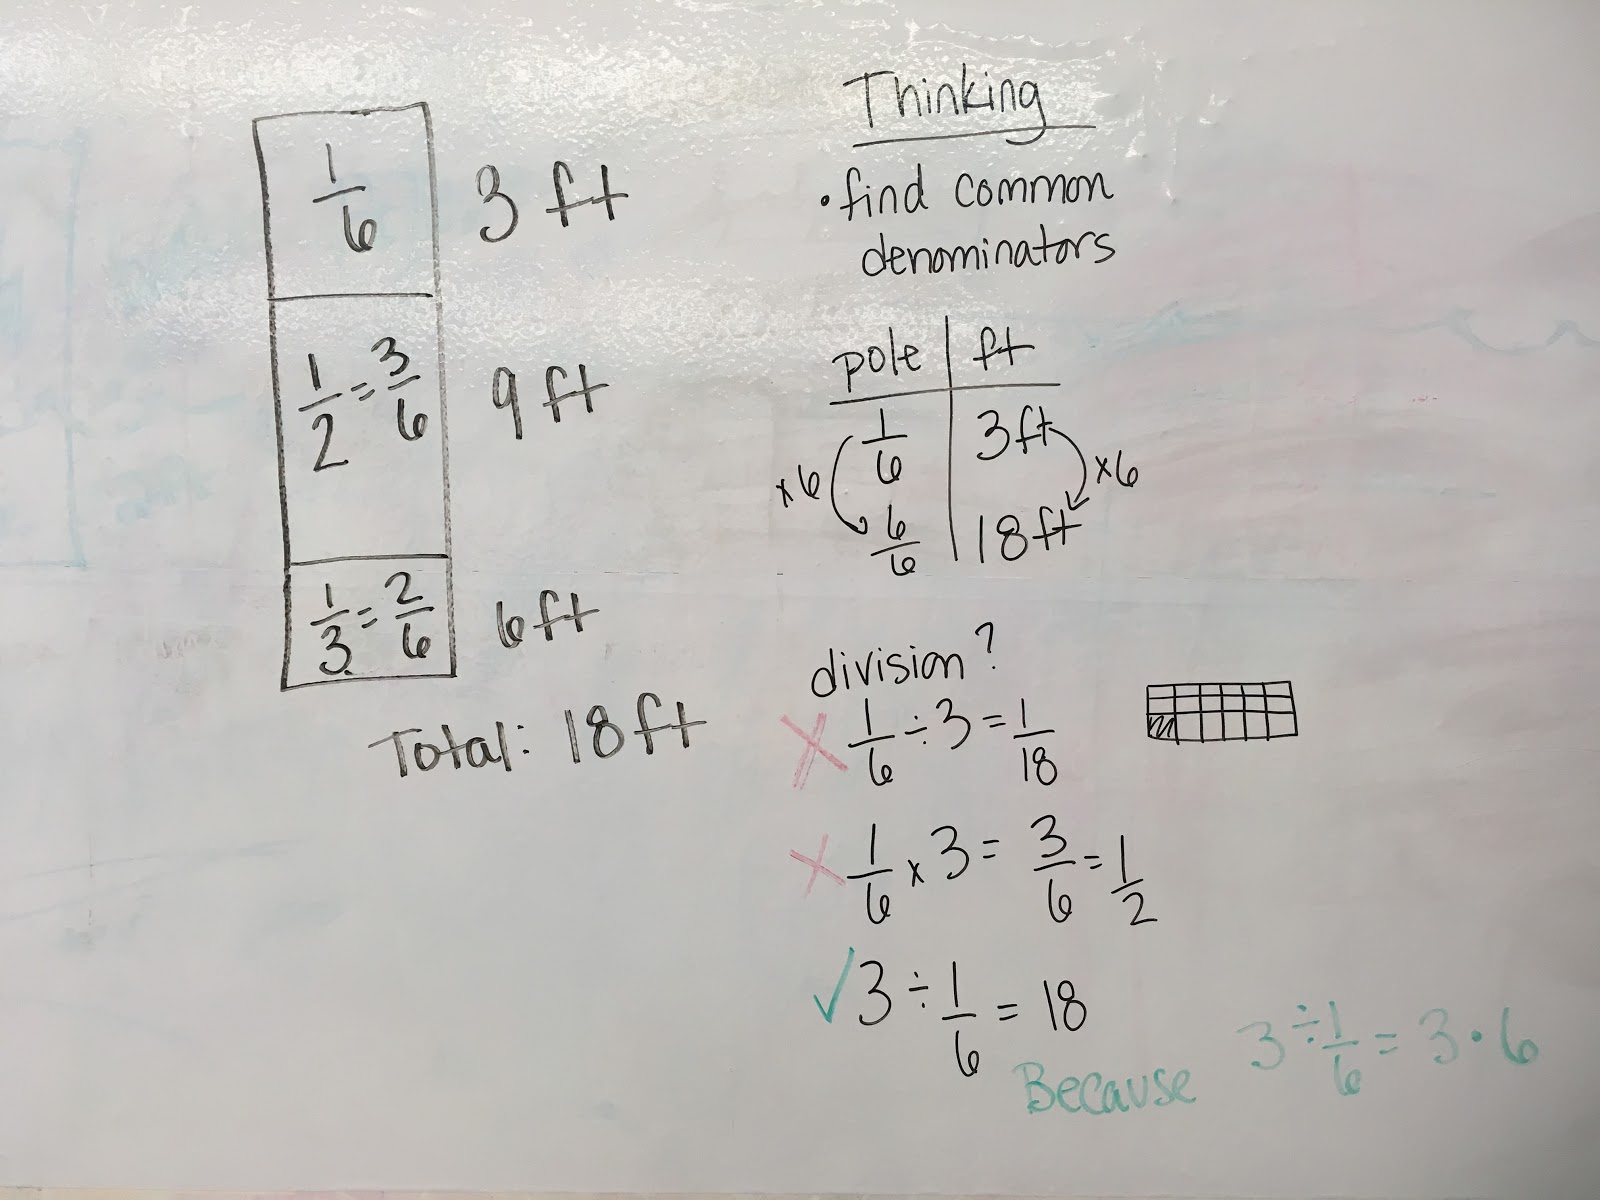 1/6 3 ft
1/2 = 3/6 9 ft
1/3 = 2/6 6 ft
Total: 18 ft
Thinking
• find common
denominators
pole | ft
1/6 | 3 ft
×6 ×6
6/6 | 18 ft
division?
✗ 1/6 ÷ 3 = 1/18
✗ 1/6 × 3 = 3/6 = 1/2
✓ 3 ÷ 1/6 = 18
Because 3 ÷ 1/6 = 3 · 6